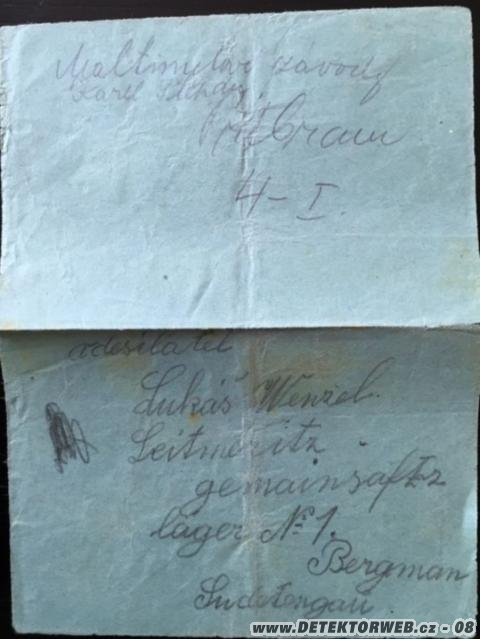 závody
Karel
Příbram
4-I.
odesílatel
Lukáš Wenzel.
Leitmeritz
gemainsaftz
läger № 1.
Bergman
Sudetengau.
www.DETEKTORWEB.cz - 08